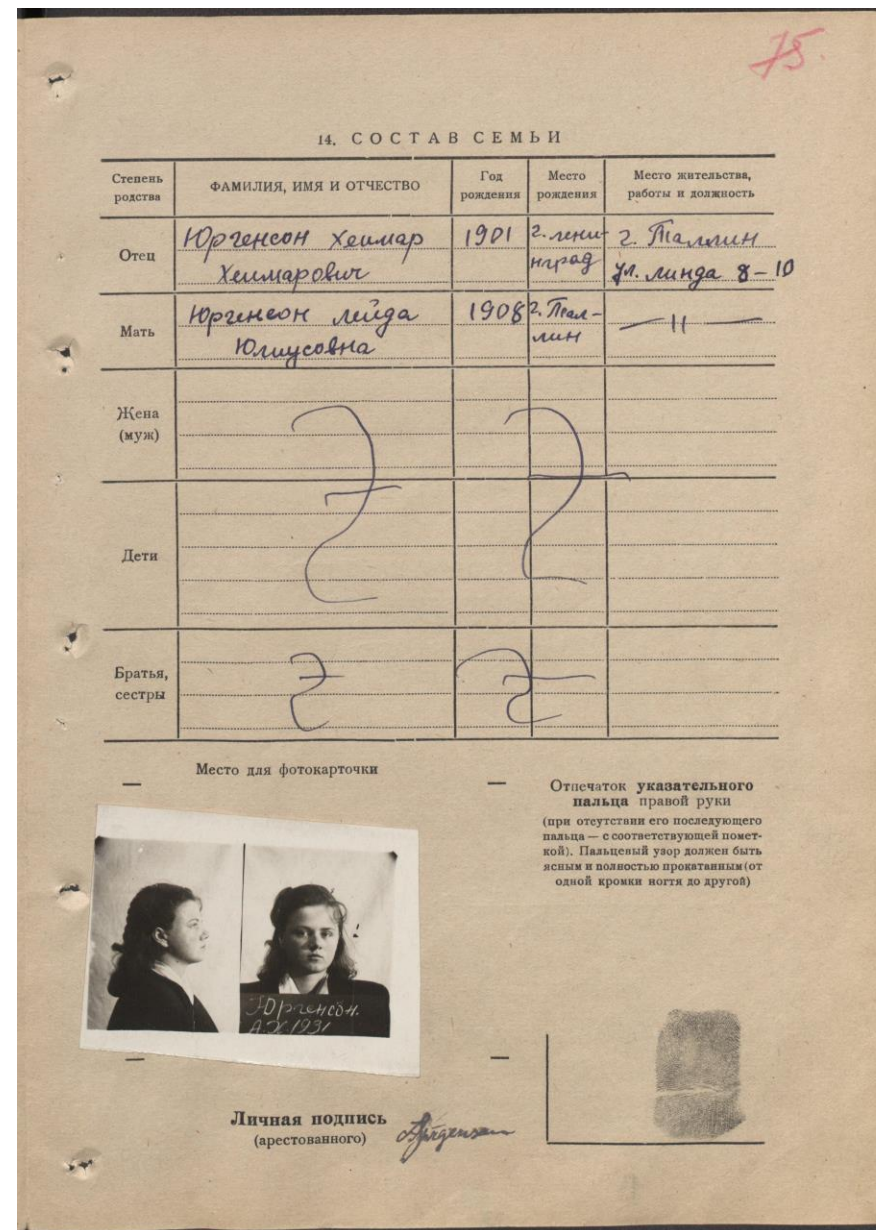 75.
14. СОСТАВ СЕМЬИ
Степень родства
ФАМИЛИЯ, ИМЯ И ОТЧЕСТВО
Год рождения
Место рождения
Место жительства, работы и должность
Отец
Юргенсон Хеимар
Хеимарович
1901
г. лени-
нград
г. Таллин
ул. линда 8-10
Мать
Юргенсон лейда
Юлиусовна
1908
г. Тал-
лин
— 11 —
Жена
(муж)
Дети
Братья,
сестры
Место для фотокарточки
Отпечаток указательного
пальца правой руки
(при отсутствии его последующего
пальца — с соответствующей помет-
кой). Пальцевый узор должен быть
ясным и полностью прокатанным (от
одной кромки ногтя до другой)
Юргенсон.
А.Х. 1931
Личная подпись
(арестованного)
AJürgenson